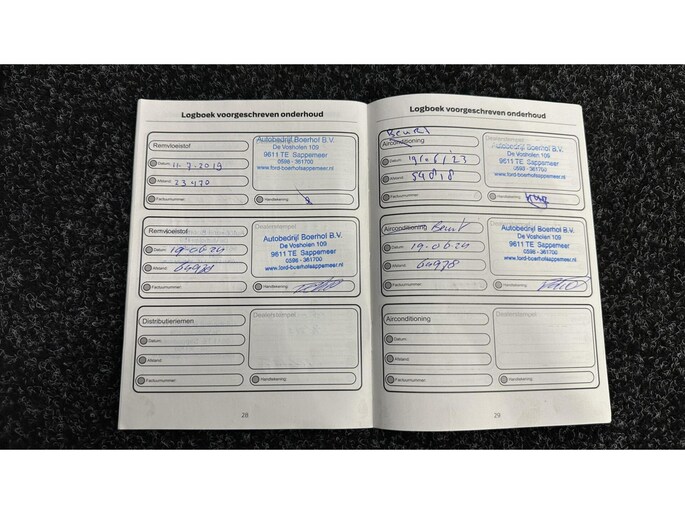 Logboek voorgeschreven onderhoud
Remvloeistof
Datum 11-7-2019
Afstand 23470
Factuurnummer:
Autobedrijf Boerhof B.V.
De Vosholen 109
9611 TE Sappemeer
0598 - 361700
www.ford-boerhofsappemeer.nl
Handtekening:
Remvloeistof
Datum 19-06-24
Afstand 64978
Factuurnummer:
Dealerstempel
Autobedrijf Boerhof B.V.
De Vosholen 109
9611 TE Sappemeer
0598 - 361700
www.ford-boerhofsappemeer.nl
Handtekening:
Distributieriemen
Datum
Afstand
Factuurnummer:
Dealerstempel
Handtekening:
28
Logboek voorgeschreven onderhoud
Beurt
Airconditioning
Datum
Afstand 54818
Factuurnummer:
Dealerstempel
Autobedrijf Boerhof B.V.
De Vosholen 109
9611 TE Sappemeer
0598 - 361700
www.ford-boerhofsappemeer.nl
Handtekening:
Airconditioning Beurt
Datum 19-06-24
Afstand 64978
Factuurnummer:
Dealerstempel
Autobedrijf Boerhof B.V.
De Vosholen 109
9611 TE Sappemeer
0598 - 361700
www.ford-boerhofsappemeer.nl
Handtekening:
Airconditioning
Datum
Afstand
Factuurnummer:
Dealerstempel
Handtekening:
29